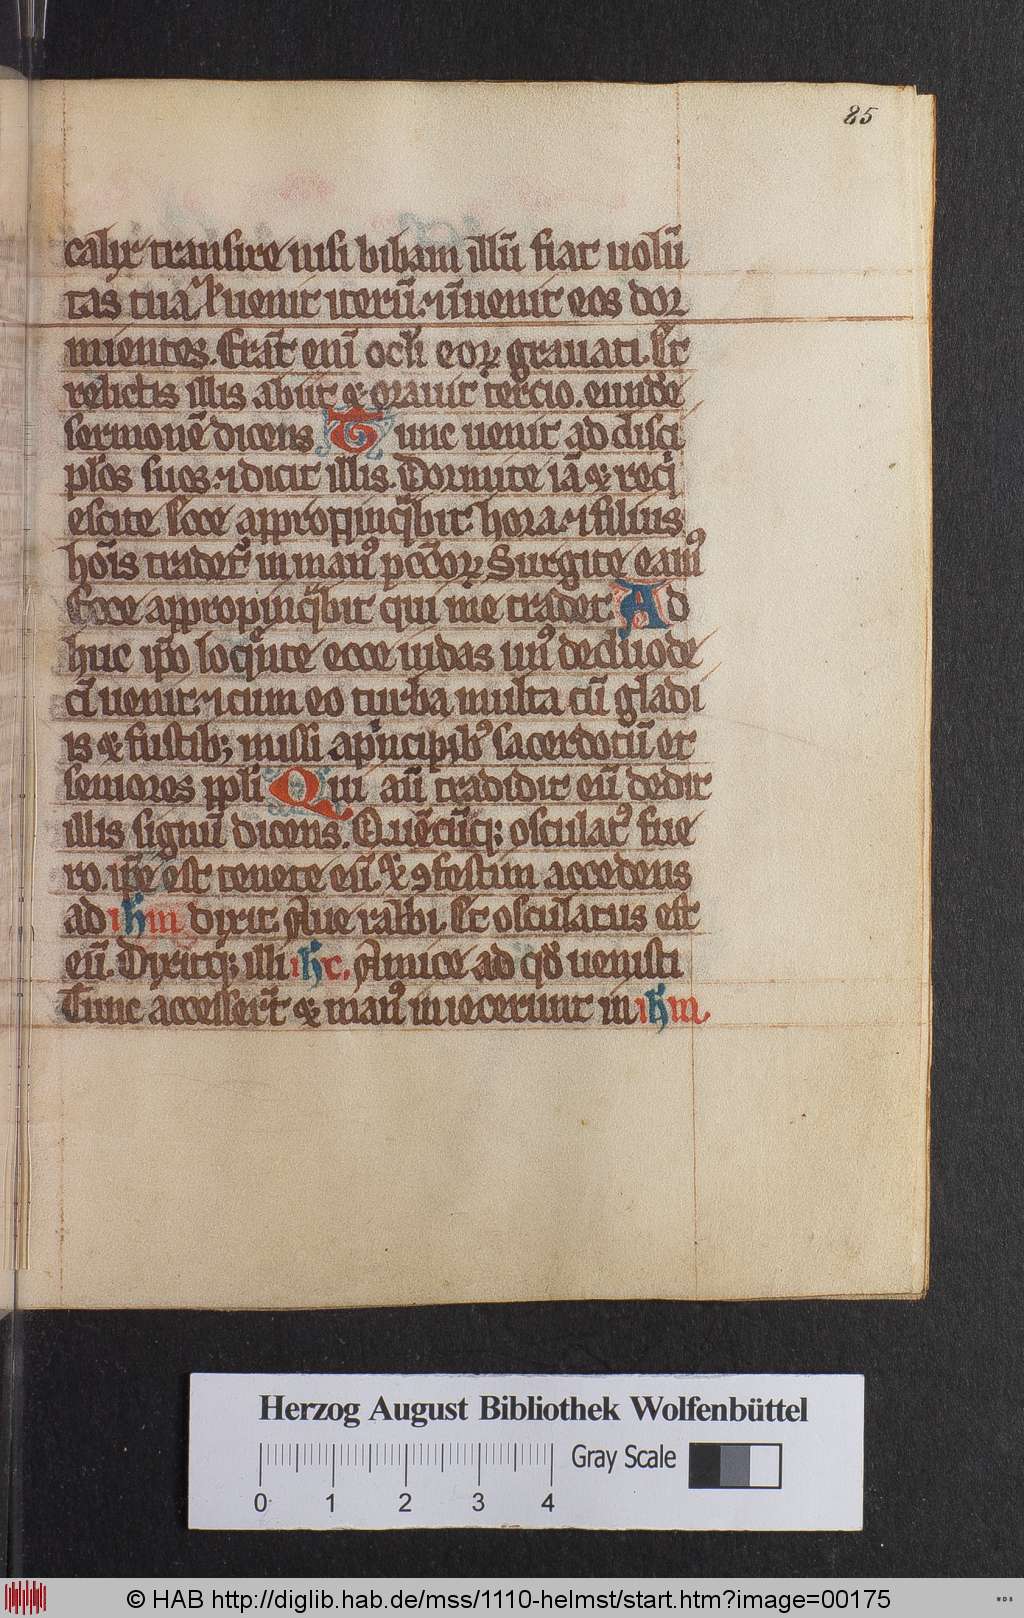 85
calix transire nisi bibam illū fiat uolū
tas tua. Et uenit iterū. ⁊ inuenit eos dor
mientes. Erāt eni oculi eoꝝ grauati. Et
relictis illis abiit & orauit tercio. eunde
sermonē dicens Tunc uenit ad disci
plos suos. ⁊ dicit illis. Dormite iā & reqi
escite Ecce appropinqbit hora. ⁊ filius
hoīs tradet᷑ in manꝰ pccōꝝ Surgite eamꝰ
Ecce appropinqbit qui me tradet Ad
huc ip̄o loqnte ecce iudas unꝰ de duode
cī uenit. ⁊ cum eo turba multa cū gladi
is & fustibꝫ missi a pincipibꝰ sacerdotū et
seniores ppli Qui aūt tradidit eū dedit
illis signū dicens. Quēcūqꝫ osculatꝰ fue
ro. ip̄e est tenete eū. & ꝯfestim accedens
ad ihm dixit. Aue rabbi. Et osculatus est
eū. Dixitqꝫ illi ihc. Amice ad qd uenisti
Tunc accesserūt & manꝰ iniecerunt in ihm.
Herzog August Bibliothek Wolfenbüttel
0 1 2 3 4 Gray Scale
© HAB http://diglib.hab.de/mss/1110-helmst/start.htm?image=00175